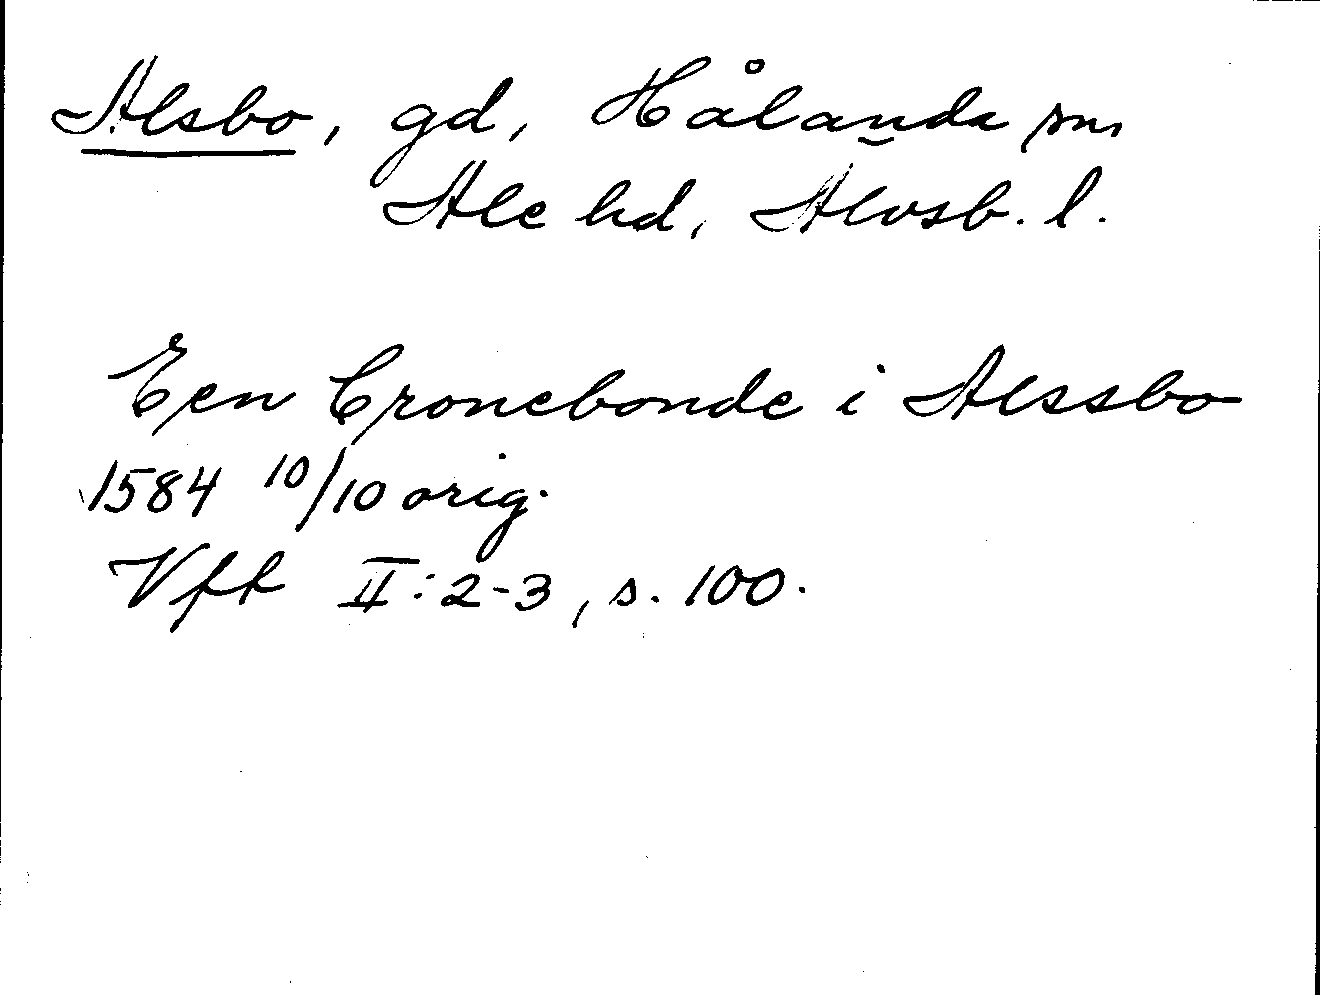 Alsbo, gd, Hålanda sn,
Ale hd, Älvsb. l.
Een Cronebonde i Alssbo
1584 10/10 orig.
Vft II:2-3, s. 100.